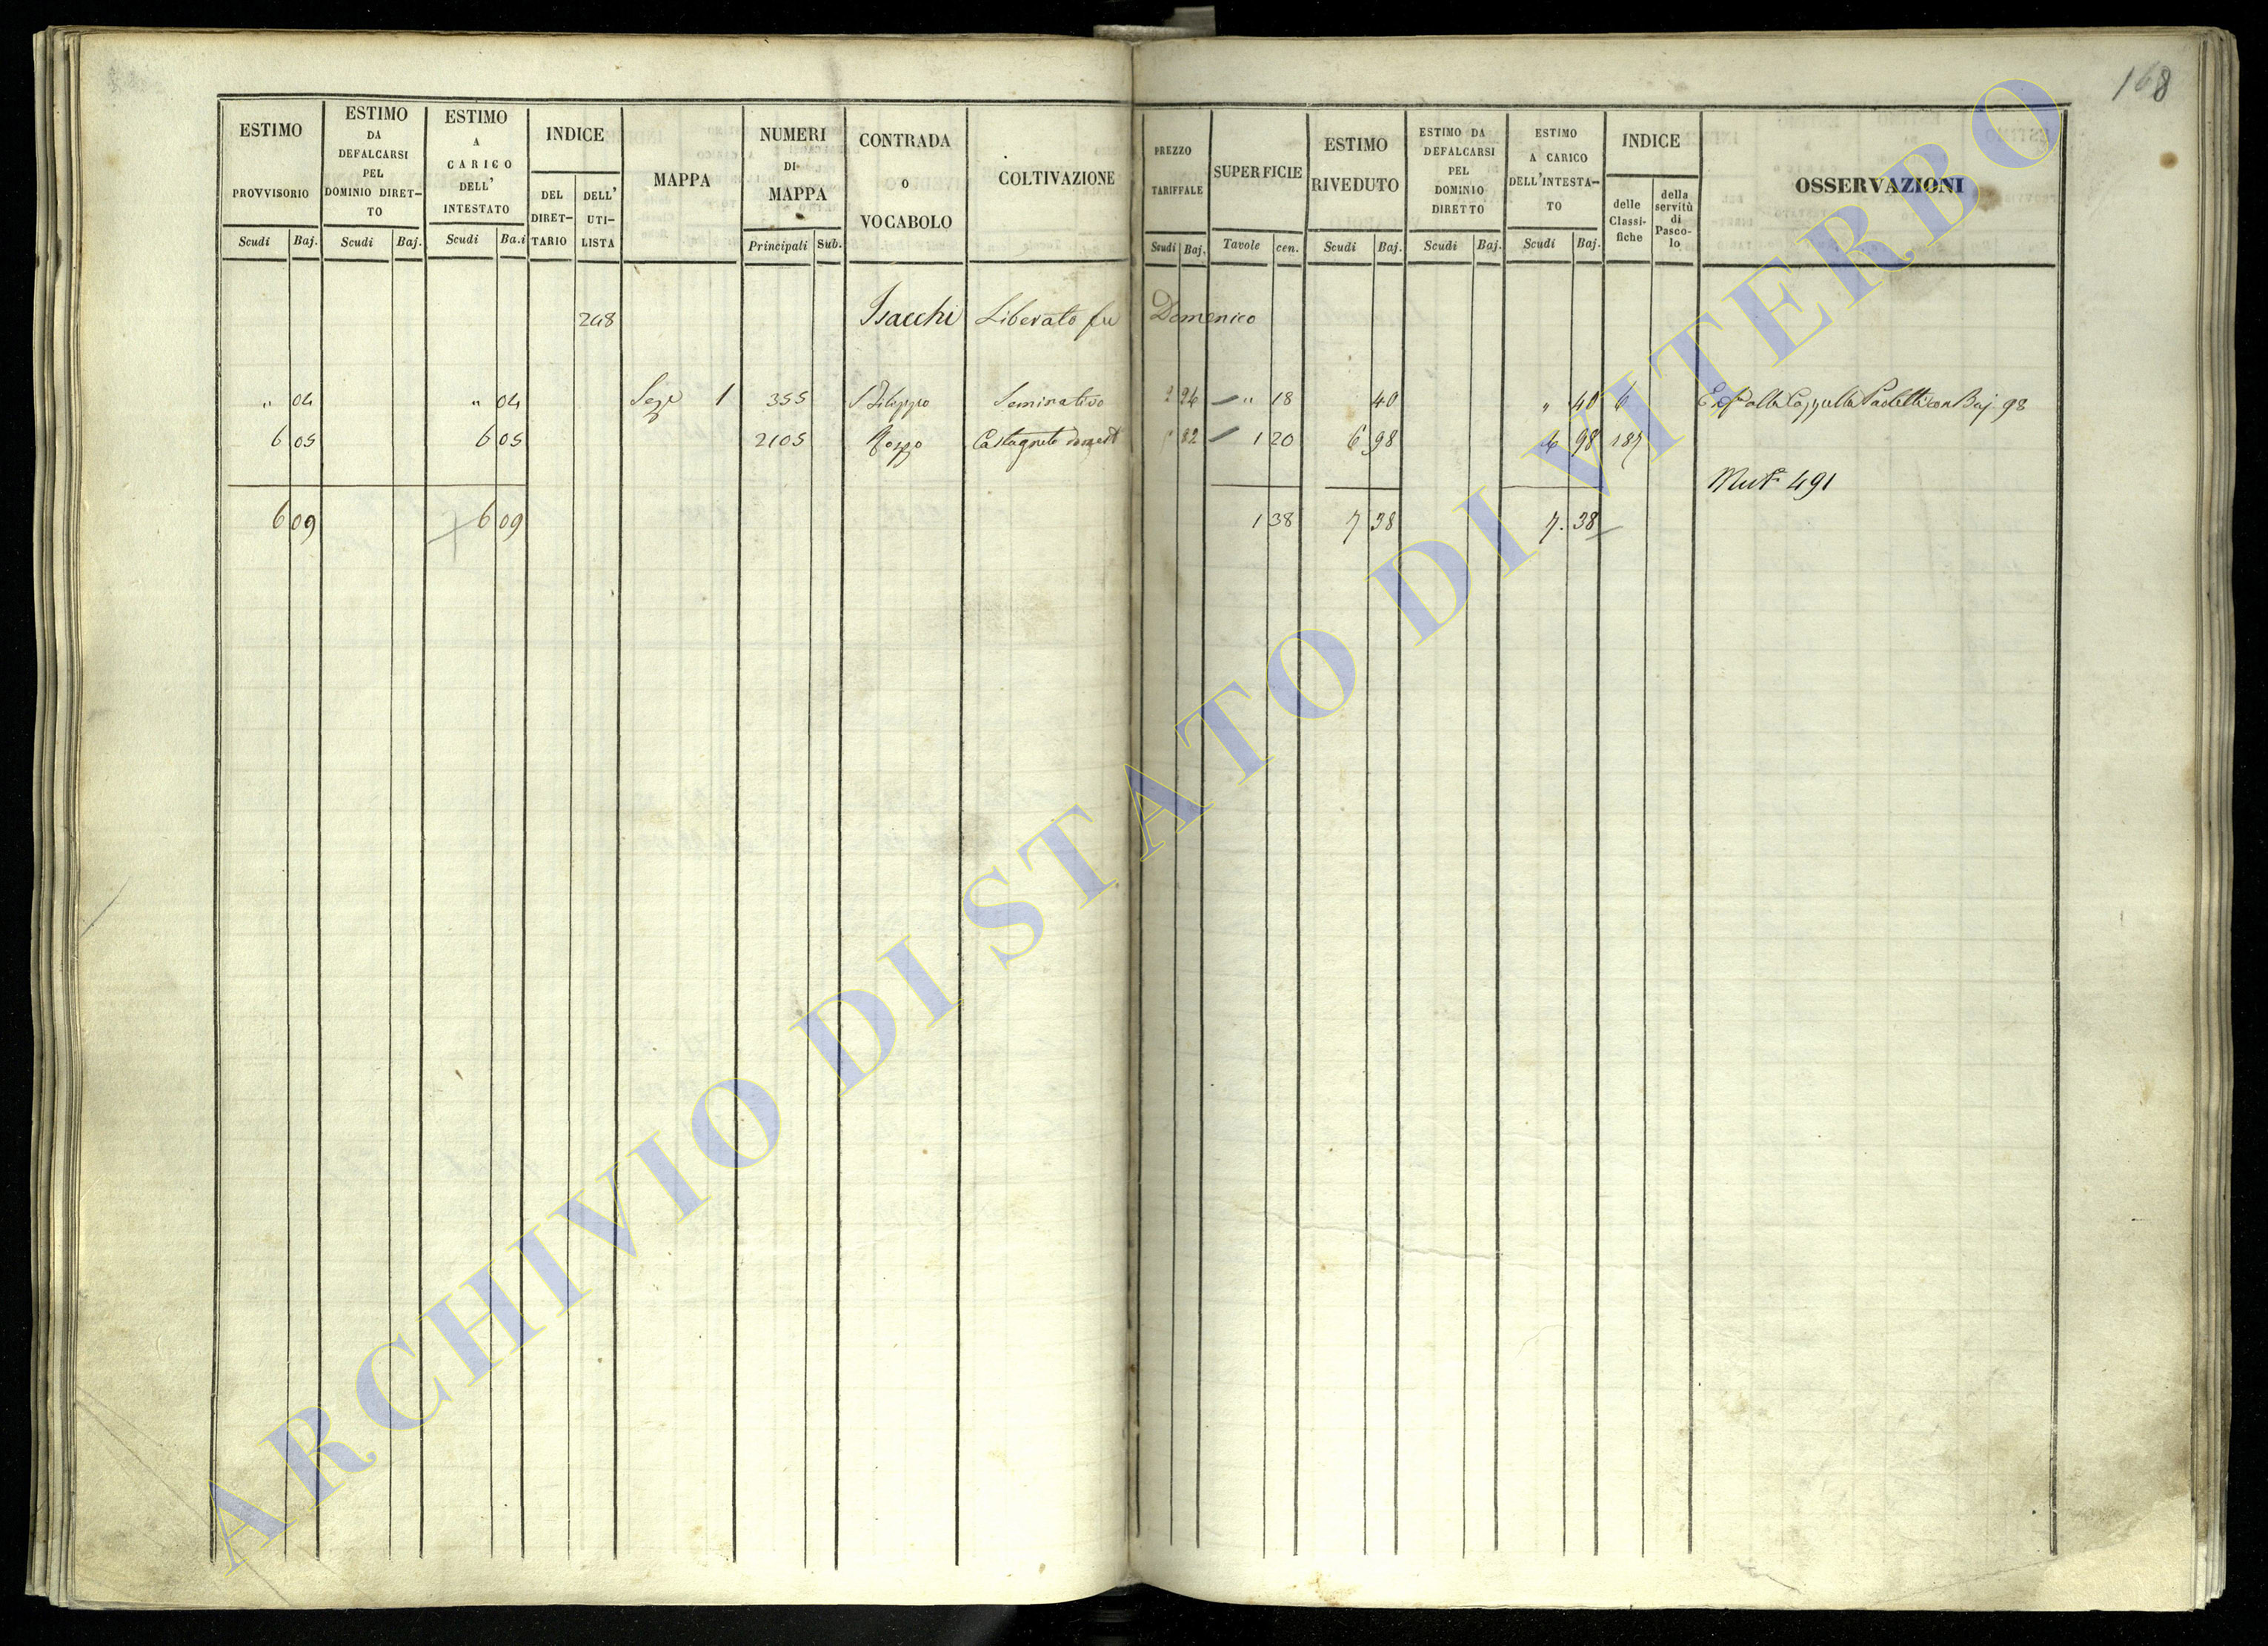 168
ESTIMO PROVVISORIO
Scudi Baj.
ESTIMO DA DEFALCARSI PEL DOMINIO DIRETTO
Scudi Baj.
ESTIMO A CARICO DELL' INTESTATO
Scudi Ba.i
INDICE
DEL DIRETTARIO
DELL' UTILISTA
MAPPA
NUMERI DI MAPPA
Principali Sub.
CONTRADA O VOCABOLO
COLTIVAZIONE
PREZZO TARIFFALE
Scudi Baj.
SUPERFICIE
Tavole cen.
ESTIMO RIVEDUTO
Scudi Baj.
ESTIMO DA DEFALCARSI PEL DOMINIO DIRETTO
Scudi Baj.
ESTIMO A CARICO DELL'INTESTATO
Scudi Baj.
INDICE
delle Classifiche
della servitù di Pascolo
OSSERVAZIONI
248 Isacchi Liberato fu Domenico
" 04 " 04 Sez. 1 355 Seminativo " 18 40 " 40 Baj. 98
6 05 6 05 2105 Rozzo Castagneto 82 1 20 6 98 6 98 187
Mut. 491
6 09 6 09 1 38 7 38 7. 38
ARCHIVIO DI STATO DI VITERBO